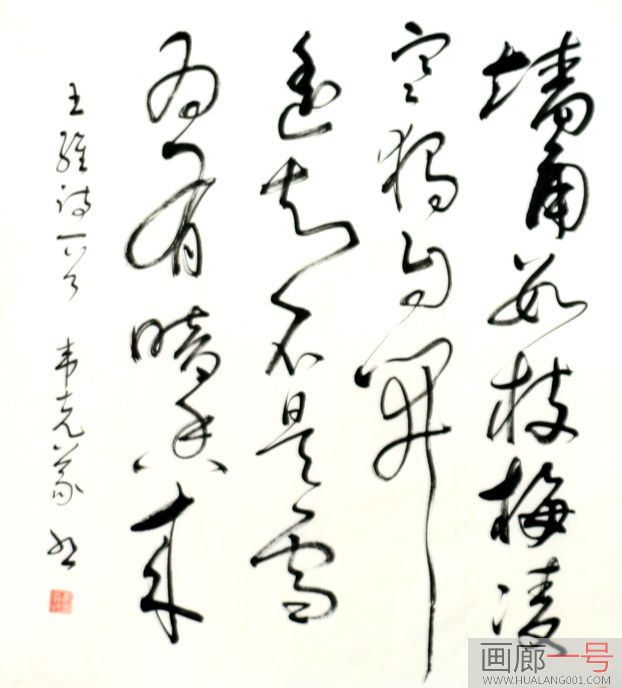 墙角数枝梅凌
寒独自開
遥知不是雪
为有暗香来
王维诗一首 韦克義书
画廊一号
WWW.HUALANG001.COM